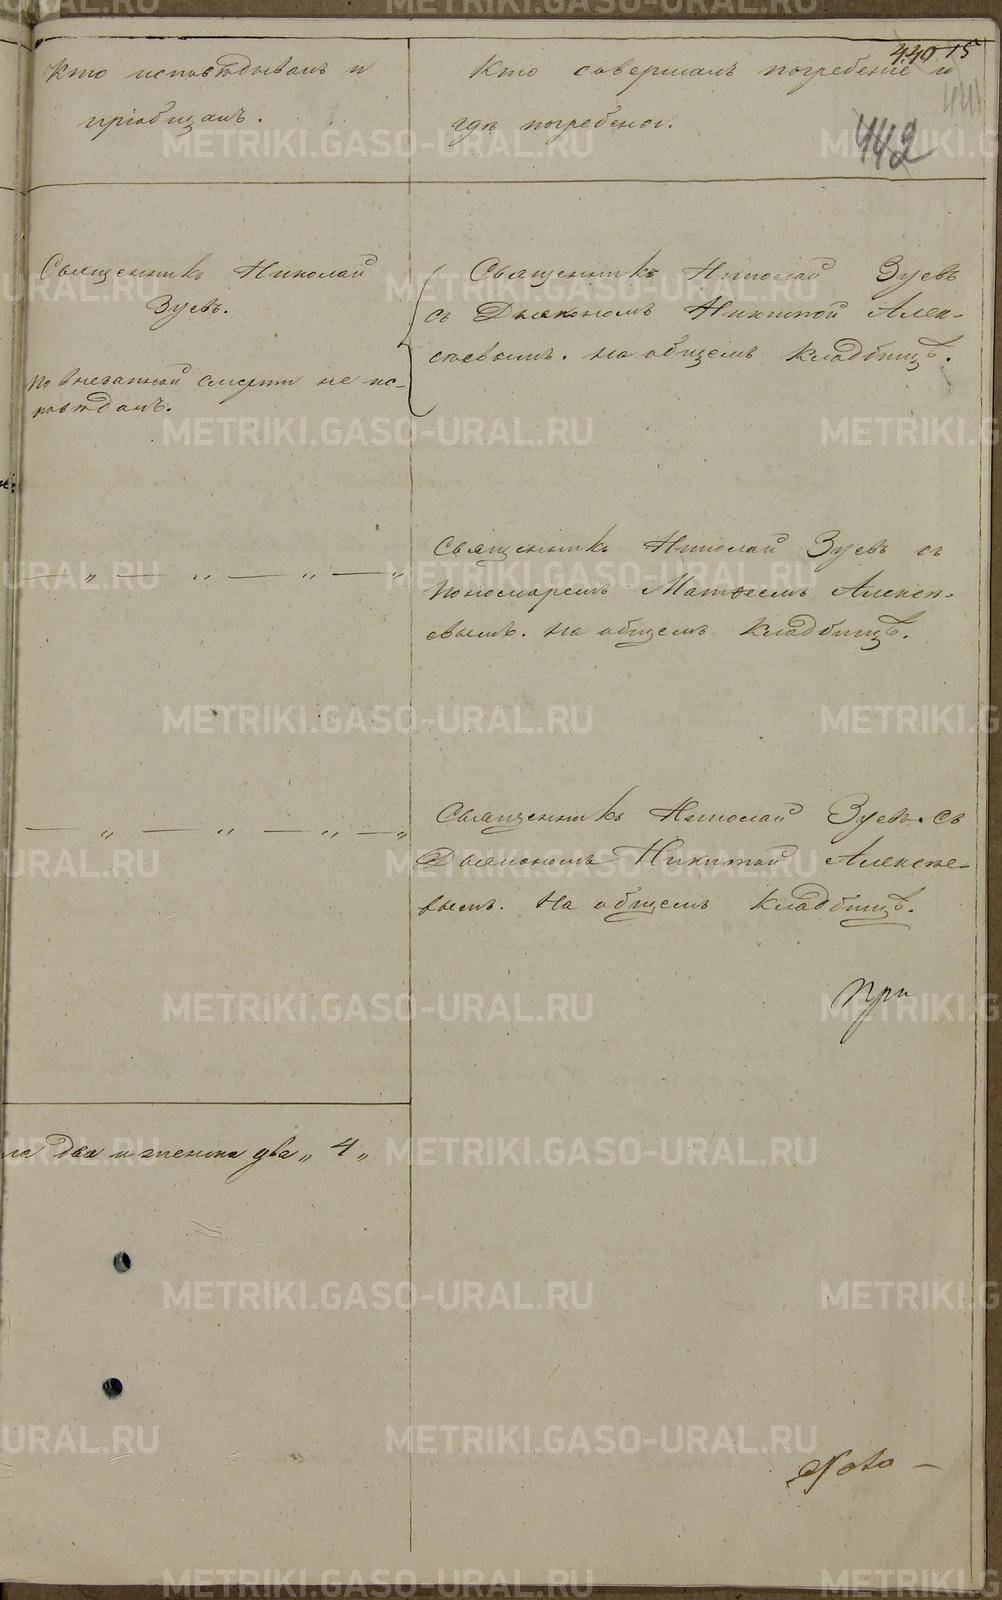 440 15
441
442
Кто исповѣдывалъ и
пріобщалъ.
Кто совершалъ погребеніе и
гдѣ погребены.
Священникъ Николай
Зуевъ.
По внезапной смерти не ис-
повѣданъ.
Священникъ Николай Зуевъ
съ Дьякономъ Никитой Алек-
сѣевымъ. На общемъ кладбищѣ.
— „ — „ — „ — „
Священникъ Николай Зуевъ съ
Пономаремъ Матѳеемъ Алексѣ-
евымъ. На общемъ кладбищѣ.
— „ — „ — „ — „
Священникъ Николай Зуевъ. съ
Дьякономъ Никитой Алексѣе-
вымъ. На общемъ кладбищѣ.
При
ла два и женска два „ 4 „
METRIKI.GASO-URAL.RU